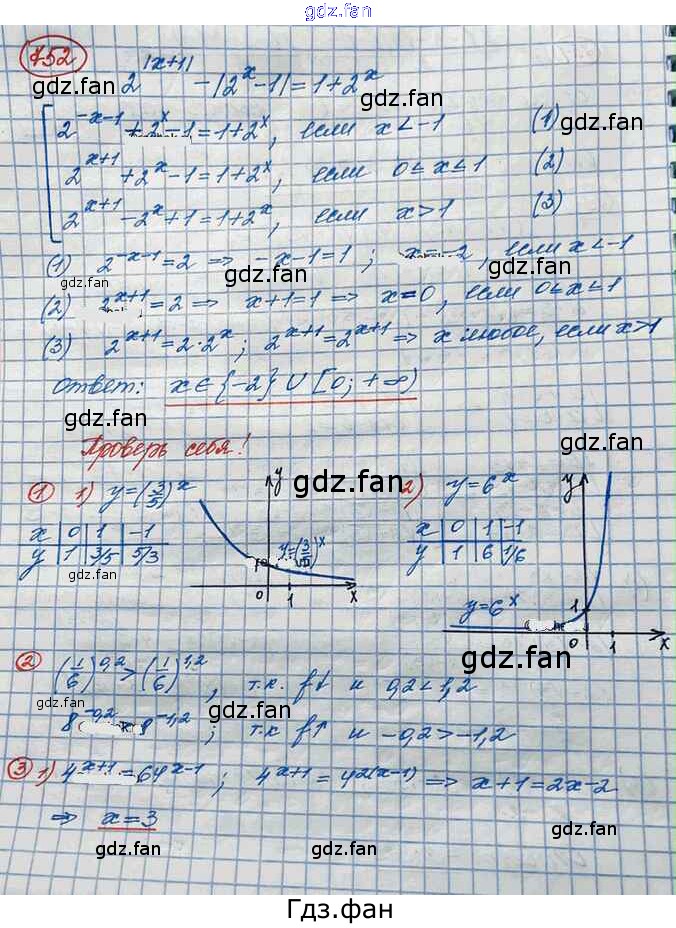 gdz.fan
752
2^{|x+1|} - |2^x - 1| = 1 + 2^x
gdz.fan gdz.fan
2^{-x-1} + 2^x - 1 = 1 + 2^x, если x < -1 (1)
gdz.fan
2^{x+1} + 2^x - 1 = 1 + 2^x, если 0 ≤ x ≤ 1 (2)
2^{x+1} - 2^x + 1 = 1 + 2^x, если x > 1 (3)
(1) 2^{-x-1} = 2 ⇒ -x-1 = 1; x = -2, если x < -1
gdz.fan gdz.fan gdz.fan
(2) 2^{x+1} = 2 ⇒ x+1 = 1 ⇒ x = 0, если 0 ≤ x ≤ 1
(3) 2^{x+1} = 2·2^x; 2^{x+1} = 2^{x+1} ⇒ x любое, если x > 1
ответ: x ∈ {-2} ∪ [0; +∞)
gdz.fan gdz.fan
Проверь себя! gdz.fan
1 1) y = (3/5)^x y gdz.fan 2) y = 6^x y
x | 0 | 1 | -1
y | 1 | 3/5 | 5/3
gdz.fan
y = (3/5)^x
1
0 1 x
x | 0 | 1 | -1
y | 1 | 6 | 1/6
gdz.fan
y = 6^x 1
0 1 x
gdz.fan gdz.fan
2 (1/6)^{0,2} > (1/6)^{1,2}, т.к. f↓ и 0,2 < 1,2
gdz.fan gdz.fan gdz.fan
; т.к f↑ и -0,2 > -1,2
3 1) 4^{x+1} = 64^{x-1}; 4^{x+1} = 4^{2(x-1)} ⇒ x+1 = 2x-2
gdz.fan
⇒ x = 3
gdz.fan gdz.fan gdz.fan
Гдз.фан